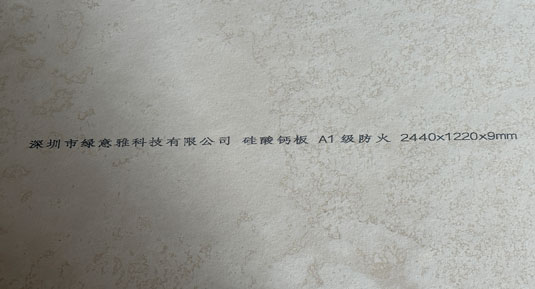 深圳市绿意雅科技有限公司 硅酸钙板 A1级防火 2440x1220x9mm